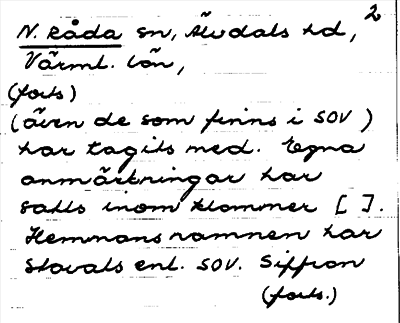 2
N. Råda sn, Älvdals hd,
Värml. län,
(forts)
(även de som finns i SOV)
har tagits med. Egna
anmärkningar har
satts inom klammer [ ].
Hemmansnamnen har
stavats enl. SOV. Siffran
(forts.)